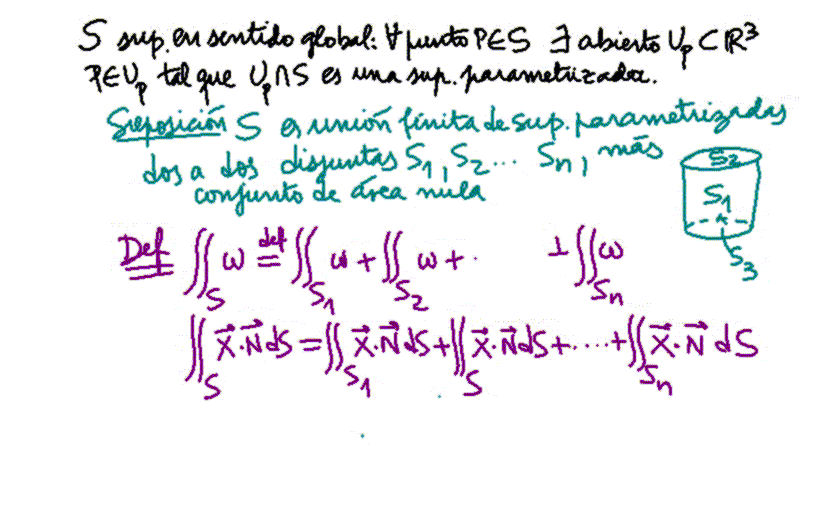 S sup. en sentido global: ∀ punto P∈S ∃ abierto Uₚ⊂ℝ³
P∈Uₚ tal que Uₚ∩S es una sup. parametrizada.
S es unión finita de sup. parametrizadas
dos a dos disjuntas S₁, S₂... Sₙ, más
conjunto de área nula
S₂
S₁
S₃
Def ∬_S ω =^def ∬_S₁ ω + ∬_S₂ ω + · ⊥ ∬_Sₙ ω
∬_S X⃗·N⃗ dS = ∬_S₁ X⃗·N⃗ dS + ∬_S X⃗·N⃗ dS + ···· + ∬_Sₙ X⃗·N⃗ dS